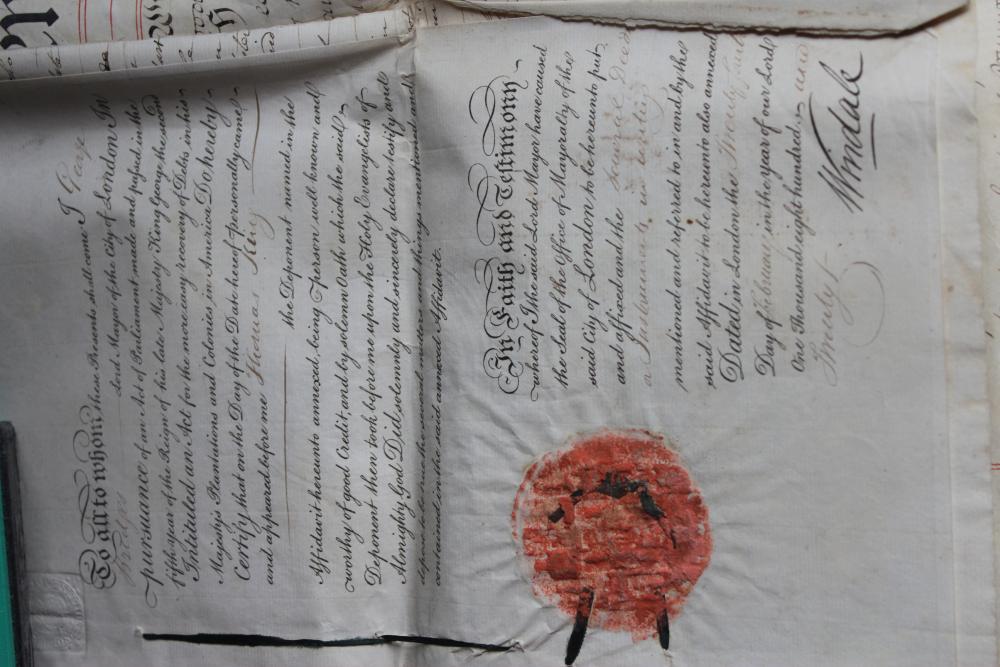 To all to whom these Presents shall come I George
Bridges Lord Mayor of the City of London In
pursuance of an Act of Parliament made and passed in the
fifth year of the Reign of his late Majesty King George the second
Intituled an Act for the more easy recovery of Debts in his
Majesty's Plantations and Colonies in America Do hereby
Certify that on the Day of the Date hereof personally came
and appeared before me Thomas King
the Deponent named in the
Affidavit hereunto annexed, being a person well known and
worthy of good Credit, and by solemn Oath which the said
Deponent then took before me upon the Holy Evangelists of
Almighty God Did solemnly and sincerely declare testify and
depose to be true the several matters and things mentioned and
contained in the said annexed Affidavit.
In Faith and Testimony
whereof I the said Lord Mayor have caused
the Seal of the Office of Mayoralty of the
said City of London to be hereunto put
and affixed and the
mentioned and referred to in and by the
said Affidavit to be hereunto also annexed
Dated in London the Twenty
Day of February in the year of our Lord
One Thousand eight hundred and
Twenty
Windale